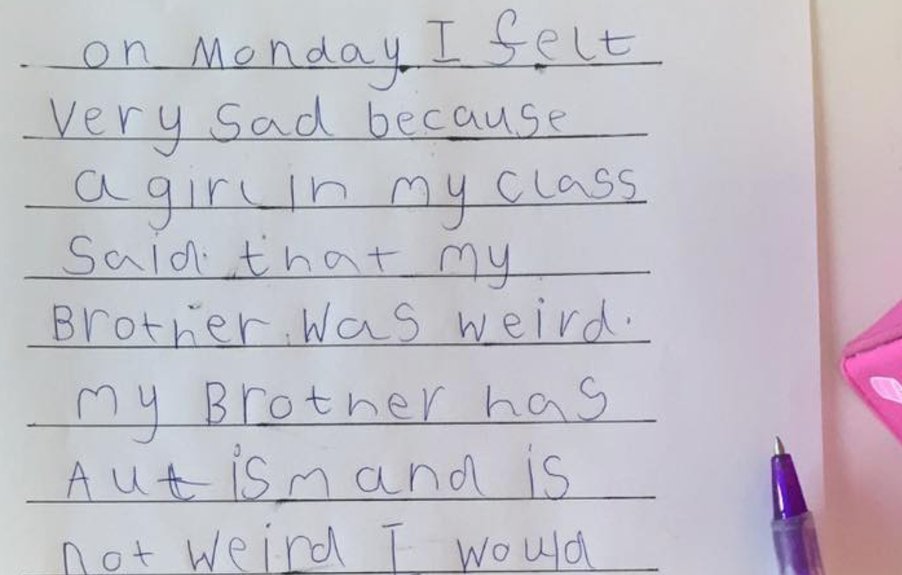 on Monday I felt
Very Sad because
a girl in my class
Said that my
Brother Was weird.
my Brother has
Autism and is
not weird I would